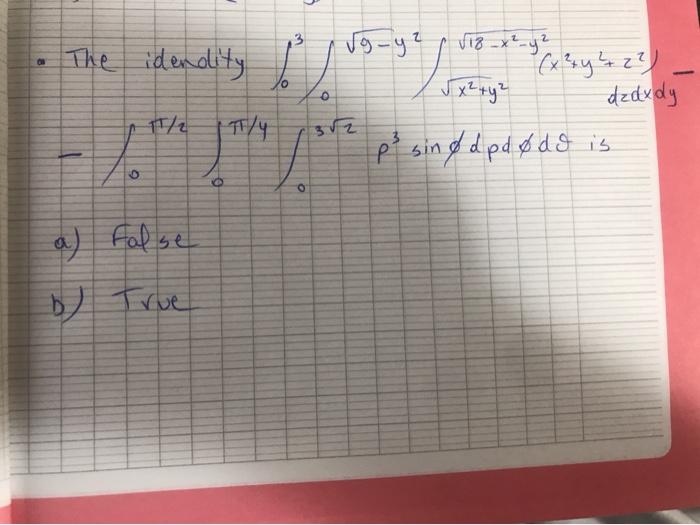 • The idendity ∫₀³ ∫₀^√(9-y²) ∫_√(x²+y²)^√(18-x²-y²) (x²+y²+z²) dzdxdy —
— ∫₀^π/2 ∫₀^π/4 ∫₀^3√2 ρ³ sin ϕ dρd ϕ dθ is
a) False
b) True